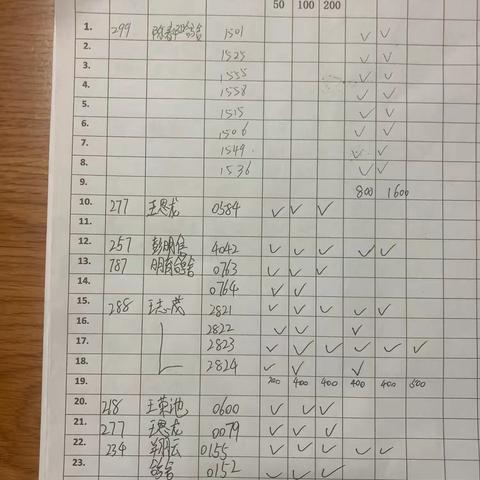 50 100 200
1. 299 1501 ✓ ✓
2. 1525 ✓ ✓
3. 1555 ✓ ✓
4. 1558 ✓ ✓
5. 1515 ✓ ✓
6. 1506 ✓ ✓
7. 1549 ✓ ✓
8. 1536 ✓ ✓
9. 800 1600
10. 277 王恩龙 0584 ✓ ✓ ✓
11.
12. 257 4042 ✓ ✓ ✓ ✓ ✓
13. 787 0763 ✓ ✓ ✓
14. 0764 ✓ ✓
15. 288 王志茂 2821 ✓ ✓ ✓ ✓ ✓
16. 2822 ✓ ✓ ✓
17. 2823 ✓ ✓ ✓ ✓ ✓ ✓
18. 2824 ✓ ✓ ✓
19. 200 400 400 400 400 500
20. 218 王荣池 0600 ✓ ✓ ✓
21. 277 0079 ✓ ✓ ✓
22. 234 翔云 0155 ✓ ✓ ✓ ✓ ✓
23. 鸽舍 0152 ✓ ✓ ✓